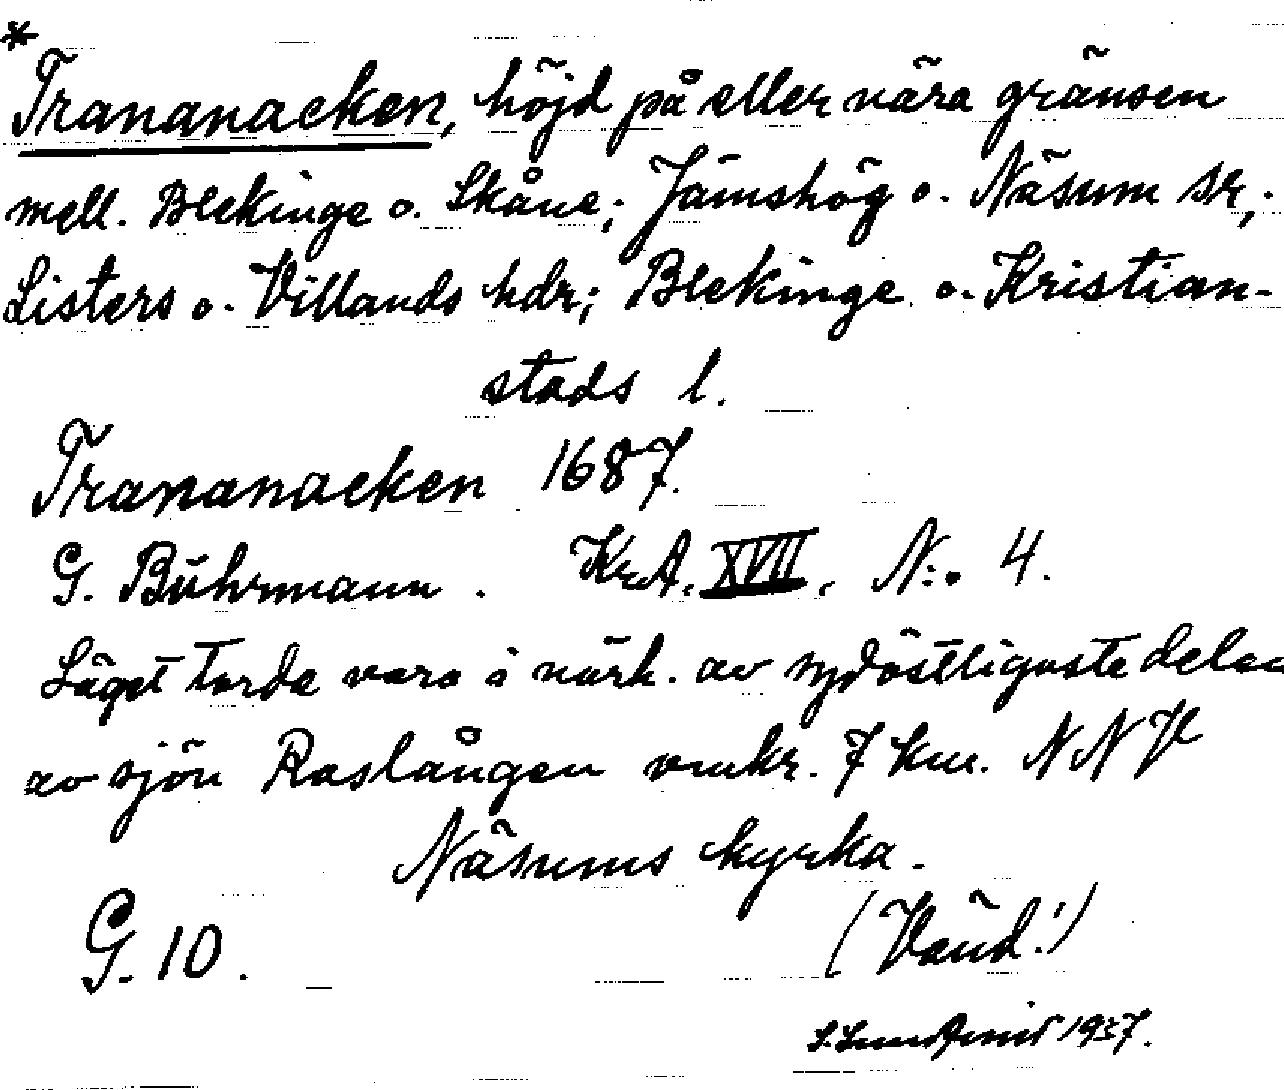 *
Trananacken, höjd på eller nära gränsen
mell. Blekinge o. Skåne; Jämshög o. Näsum sr,;
Listers o. Villands hdr; Blekinge o. Kristian-
stads l.
Trananacken 1687.
G. Buhrmann. Kr.A. XVII, N:o 4.
Läget torde vara i närh. av sydöstligaste delen
av sjön Raslången omkr. 7 km. NNV
Näsums kyrka.
G. 10. (Vänd!)
1937.